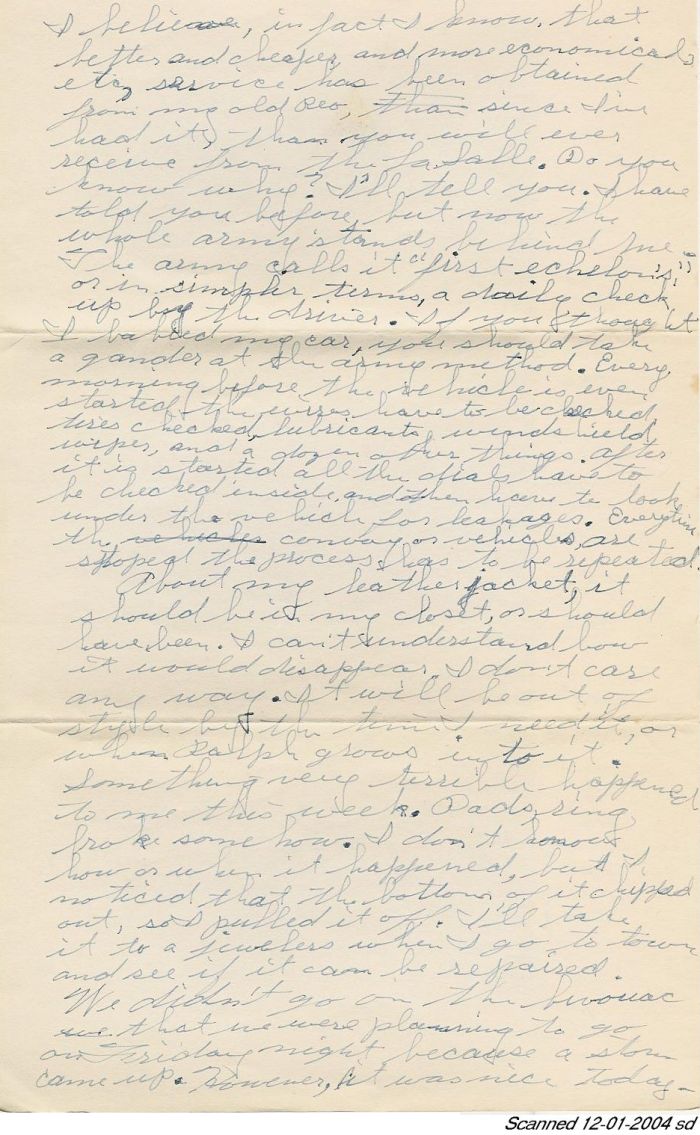 I believe, in fact I know, that
better and cheaper, and more economical,
etc, service has been obtained
from my old Reo, than since I've
had it, than you will ever
receive from the La Salle. Do you
know why? I'll tell you. I have
told you before, but now the
whole army stands behind me.
The army calls it "first echelon's,"
or in simpler terms, a daily check
up by the driver. If you thought
I babied my car, you should take
a gander at the army method. Every
morning before the vehicle is even
started the wires have to be checked,
tires checked, lubricants, windshield
wiper, and a dozen other things. After
it is started all the dials have to
be checked inside, and then have to look
under the vehicle for leakages. Everytime
the vehicles convoy or vehicles are
stoped the process has to be repeated.
About my leather jacket, it
should be in my closet, or should
have been. I can't understand how
it would disappear. I don't care
any way. It will be out of
style by the time I need it, or
when Ralph grows into it.
Something very terrible happened
to me this week. Dads ring
broke some how. I don't know
how or when it happened, but I
noticed that the bottom of it chipped
out, so I pulled it off. I'll take
it to a jewelers when I go to town
and see if it can be repaired.
We didn't go on the bivouac
that we were planning to go
on Friday night because a storm
came up. However, it was nice today-
Scanned 12-01-2004 sd